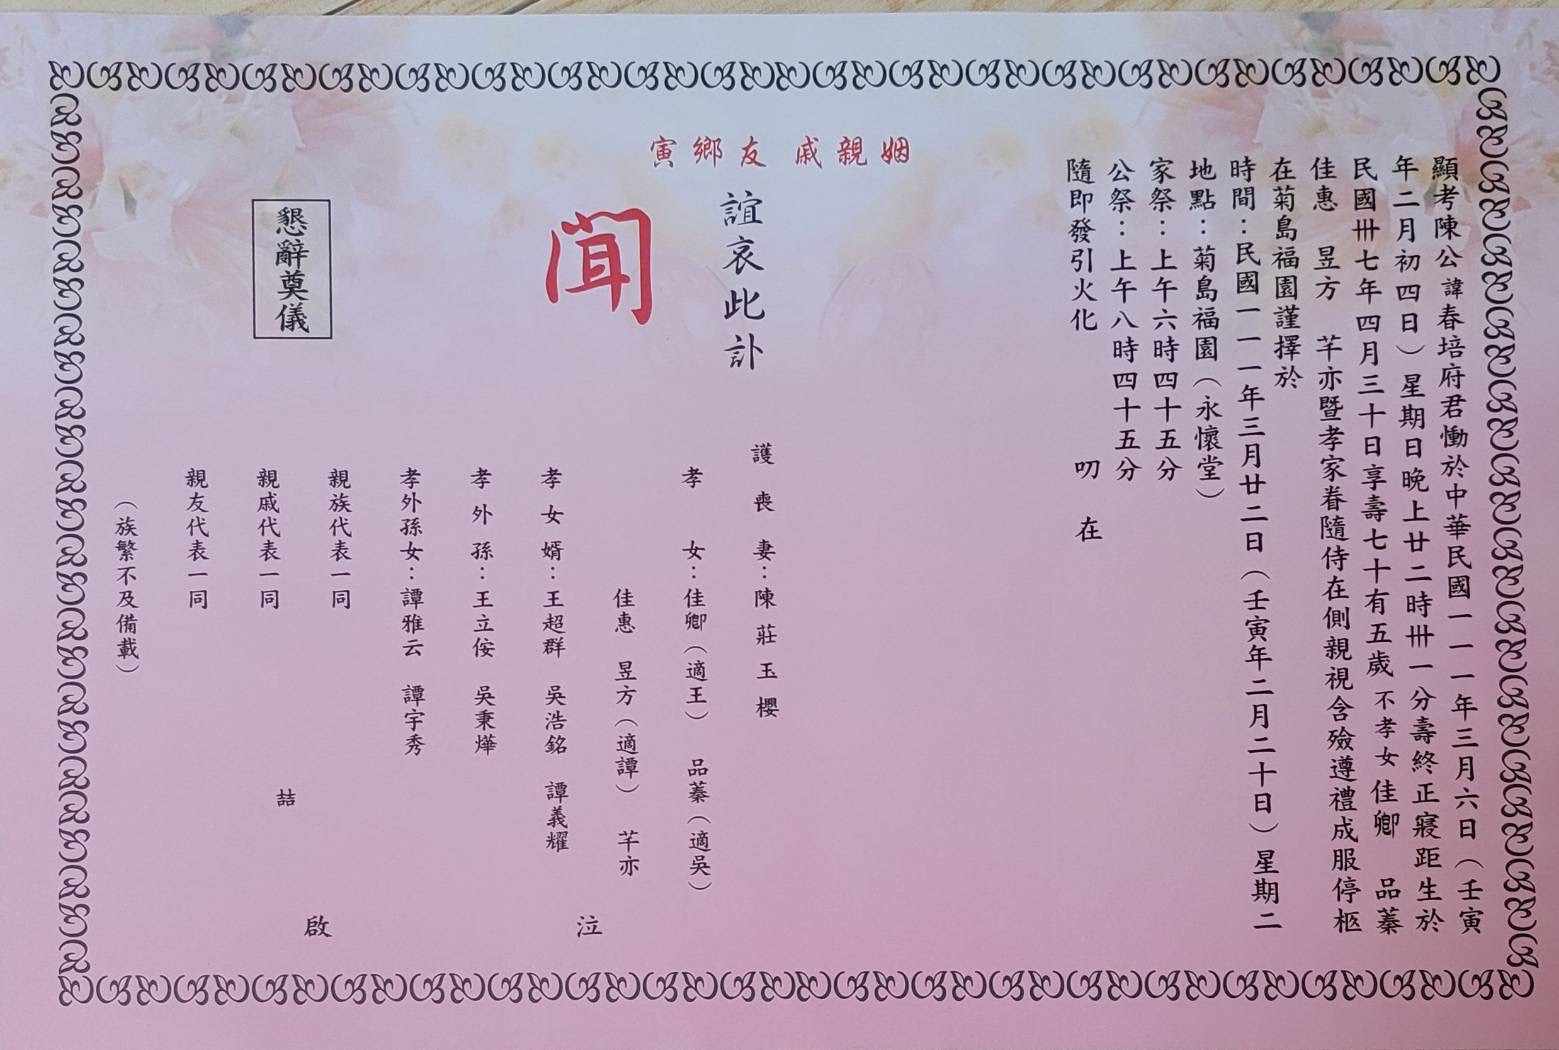 顯考陳公諱春培府君慟於中華民國一一一年三月六日(壬寅
年二月初四日)星期日晚上廿二時卅一分壽終正寢距生於
民國卅七年四月三十日享壽七十有五歲不孝女佳卿 品蓁
佳惠 昱方 芊亦暨孝家眷隨侍在側親視含殮遵禮成服停柩
在菊島福園謹擇於
時間:民國一一一年三月廿二日(壬寅年二月二十日)星期二
地點:菊島福園(永懷堂)
家祭:上午六時四十五分
公祭:上午八時四十五分
隨即發引火化 叨 在
姻親戚 友鄉寅
誼哀此訃
聞
護喪妻:陳莊玉櫻
孝 女:佳卿(適王) 品蓁(適吳)
佳惠 昱方(適譚) 芊亦
孝女婿:王超群 吳浩銘 譚義耀
泣
孝外孫:王立侒 吳秉燁
孝外孫女:譚雅云 譚宇秀
親族代表一同
親戚代表一同
親友代表一同
(族繁不及備載)
喆
啟
懇辭奠儀